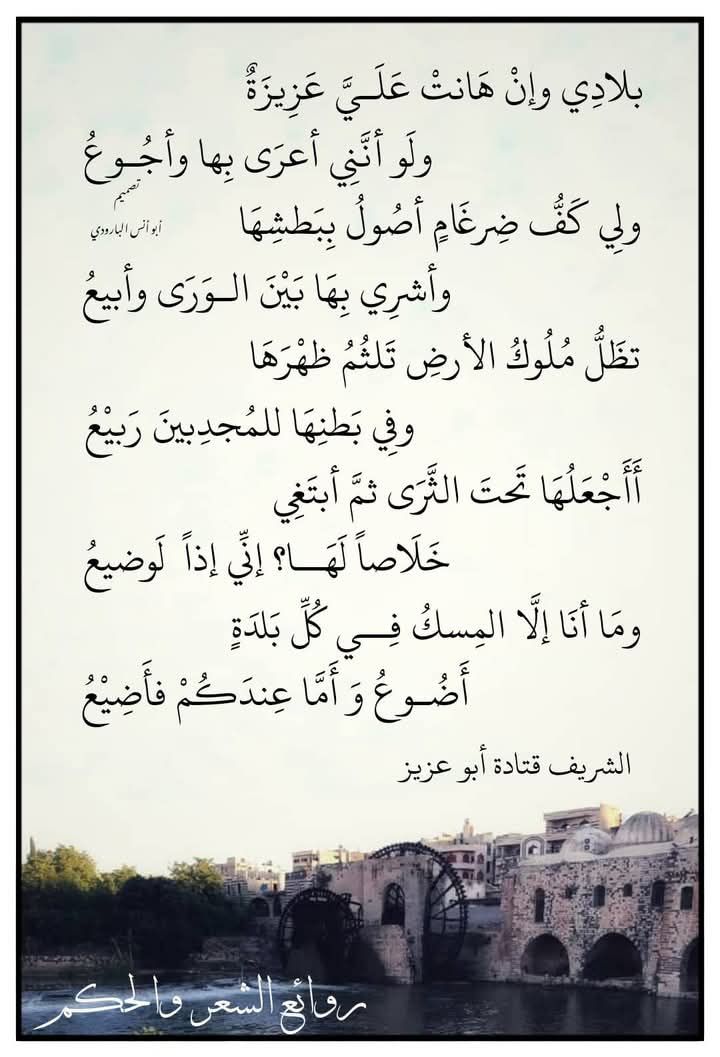 بلادِي وإنْ هَانتْ عَلَــيَّ عَزِيزَةٌ
ولَو أنَّنِي أعرَى بِها وأجُــوعُ
تصميم
ولِي كَفُّ ضِرغَامٍ أصُولُ بِبَطشِهَا
أبو أنس البارودي
وأشرِي بِهَا بَيْنَ الــوَرَى وأبيعُ
تظَلُّ مُلُوكُ الأرضِ تَلثُمُ ظهْرَهَا
وفِي بَطنِهَا للمُجدِبينَ رَبيْعُ
أَأَجْعَلُهَا تَحتَ الثَّرَى ثمَّ أبتَغِي
خَلَاصاً لَهَــــا؟ إنِّي إذاً لَوضيعُ
ومَا أنَا إلَّا المِسكُ فِــــي كُلِّ بَلدَةٍ
أَضُــوعُ وَ أَمَّا عِندَكُمْ فأَضِيْعُ
الشريف قتادة أبو عزيز
روائع الشعر والحكم